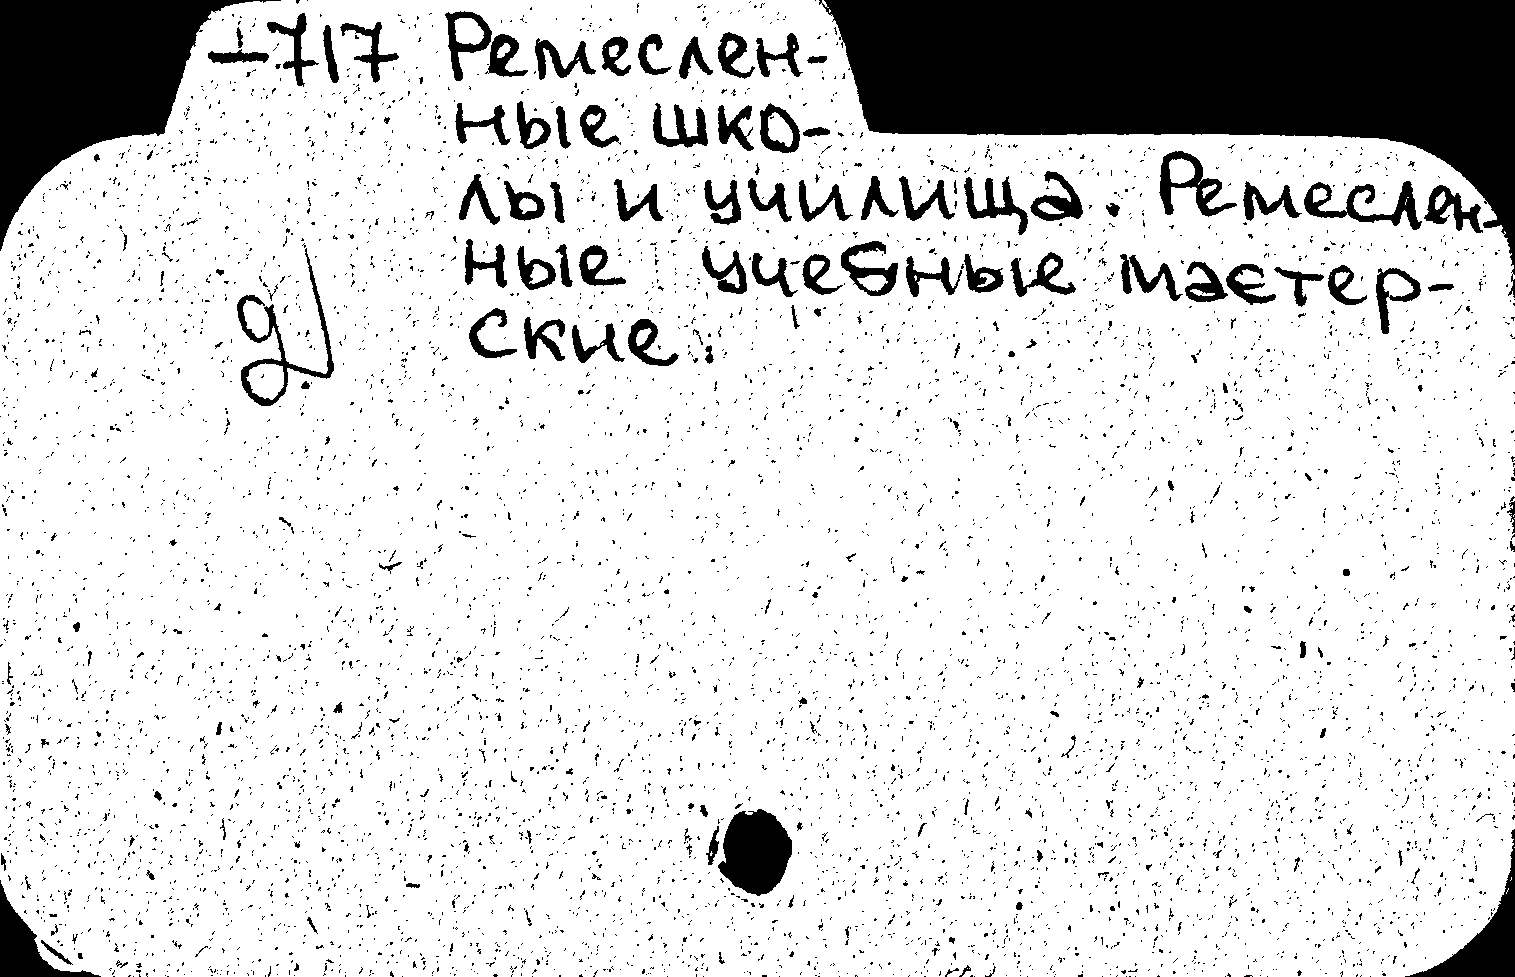 -717 Ремеслен-
ные шко-
лы и училища. Ремеслен-
ные учебные мастер-
ские.